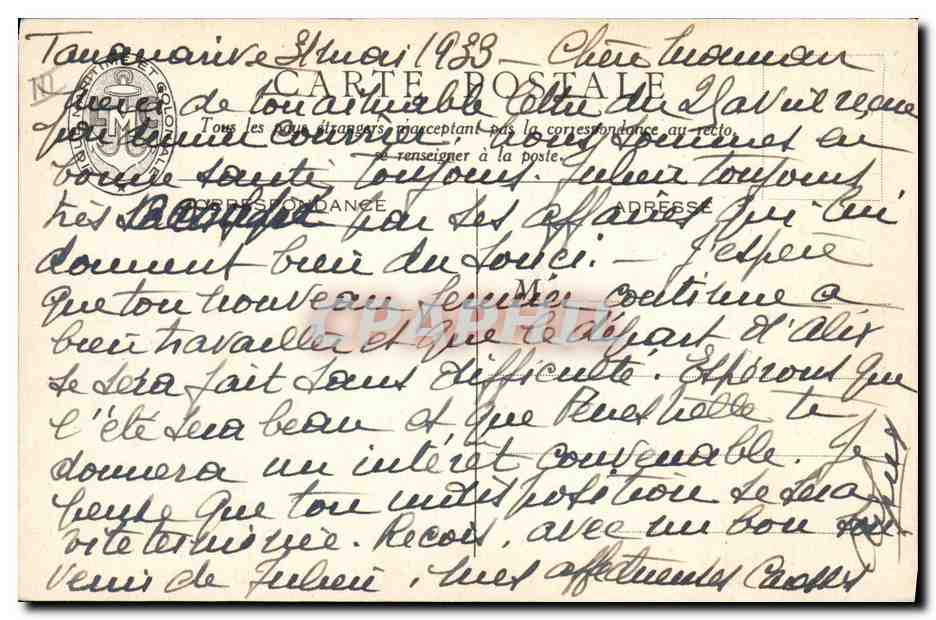 Tananarive 31 mai 1933 - Chère Maman
CARTE POSTALE
MARITIME ET COLONIALE
M
merci de ton aimable lettre du 25 avril reçue
Tous les pays étrangers n'acceptant pas la correspondance au recto,
par dernier courrier. Nous sommes en
se renseigner à la poste.
bonne santé, toujours. Julien toujours
CORRESPONDANCE
ADRESSE
très par ses affaires qui lui
donnent bien du souci. - J'espère
M
que ton nouveau fermier continue a
CPAPHIL
bien travailler et que le départ d'Alix
se sera fait sans difficulté. Espérons que
l'été sera beau et que te
donnera un intérêt convenable. Je
pense que ton indisposition se sera
vite terminée. Reçois, avec un bon sou
venir de Julien, mes affectueuses caresses